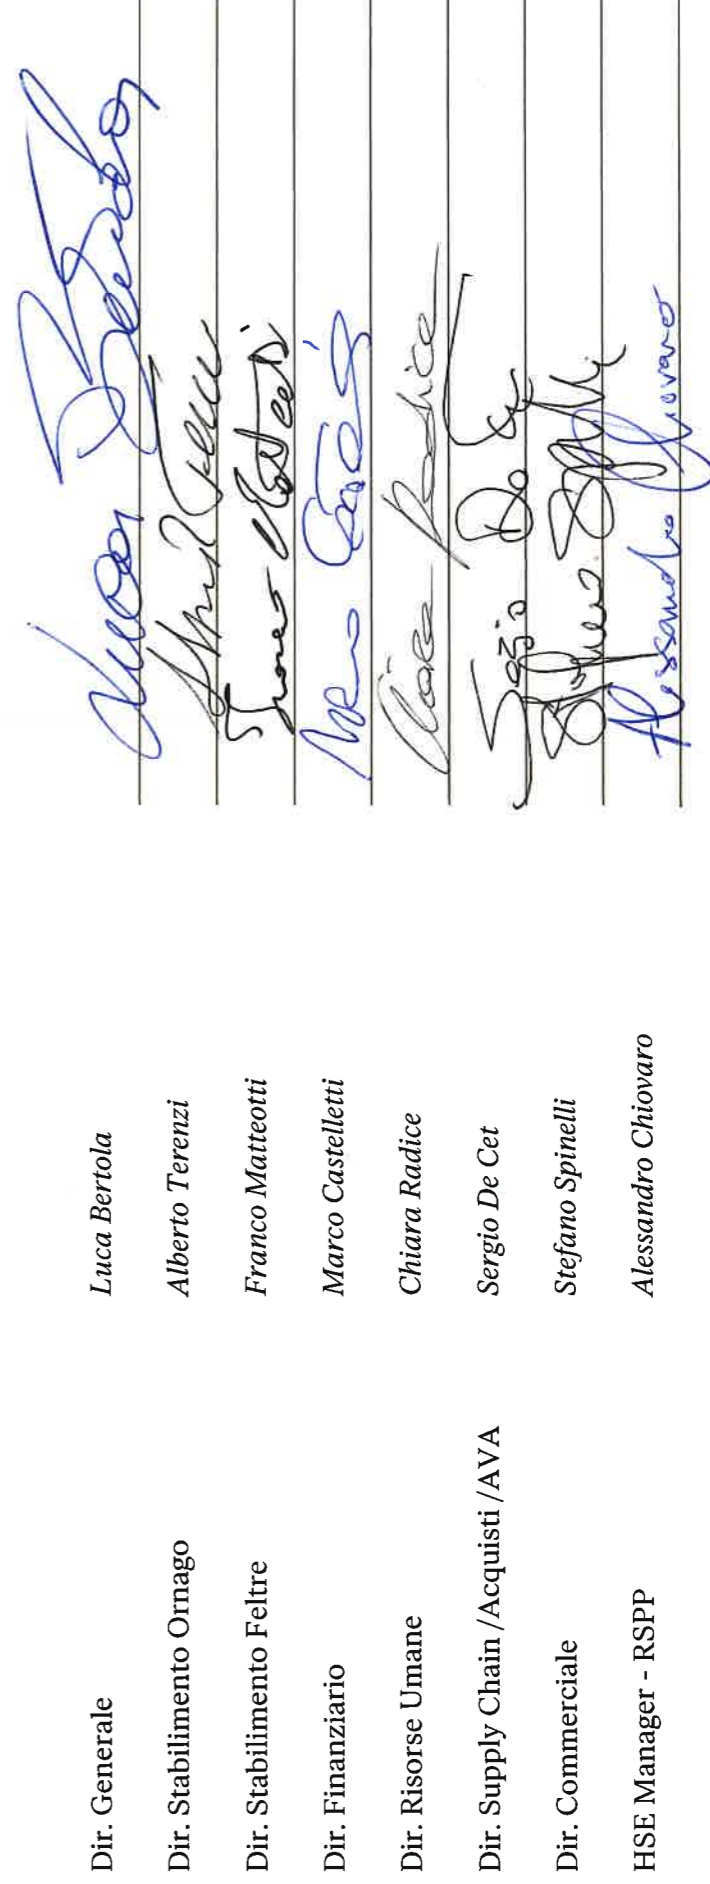 Dir. Generale Luca Bertola Luca Bertola
Dir. Stabilimento Ornago Alberto Terenzi
Dir. Stabilimento Feltre Franco Matteotti Franco Matteotti
Dir. Finanziario Marco Castelletti
Dir. Risorse Umane Chiara Radice Chiara Radice
Dir. Supply Chain /Acquisti /AVA Sergio De Cet Sergio De Cet
Dir. Commerciale Stefano Spinelli Stefano Spinelli
HSE Manager - RSPP Alessandro Chiovaro Alessandro Chiovaro